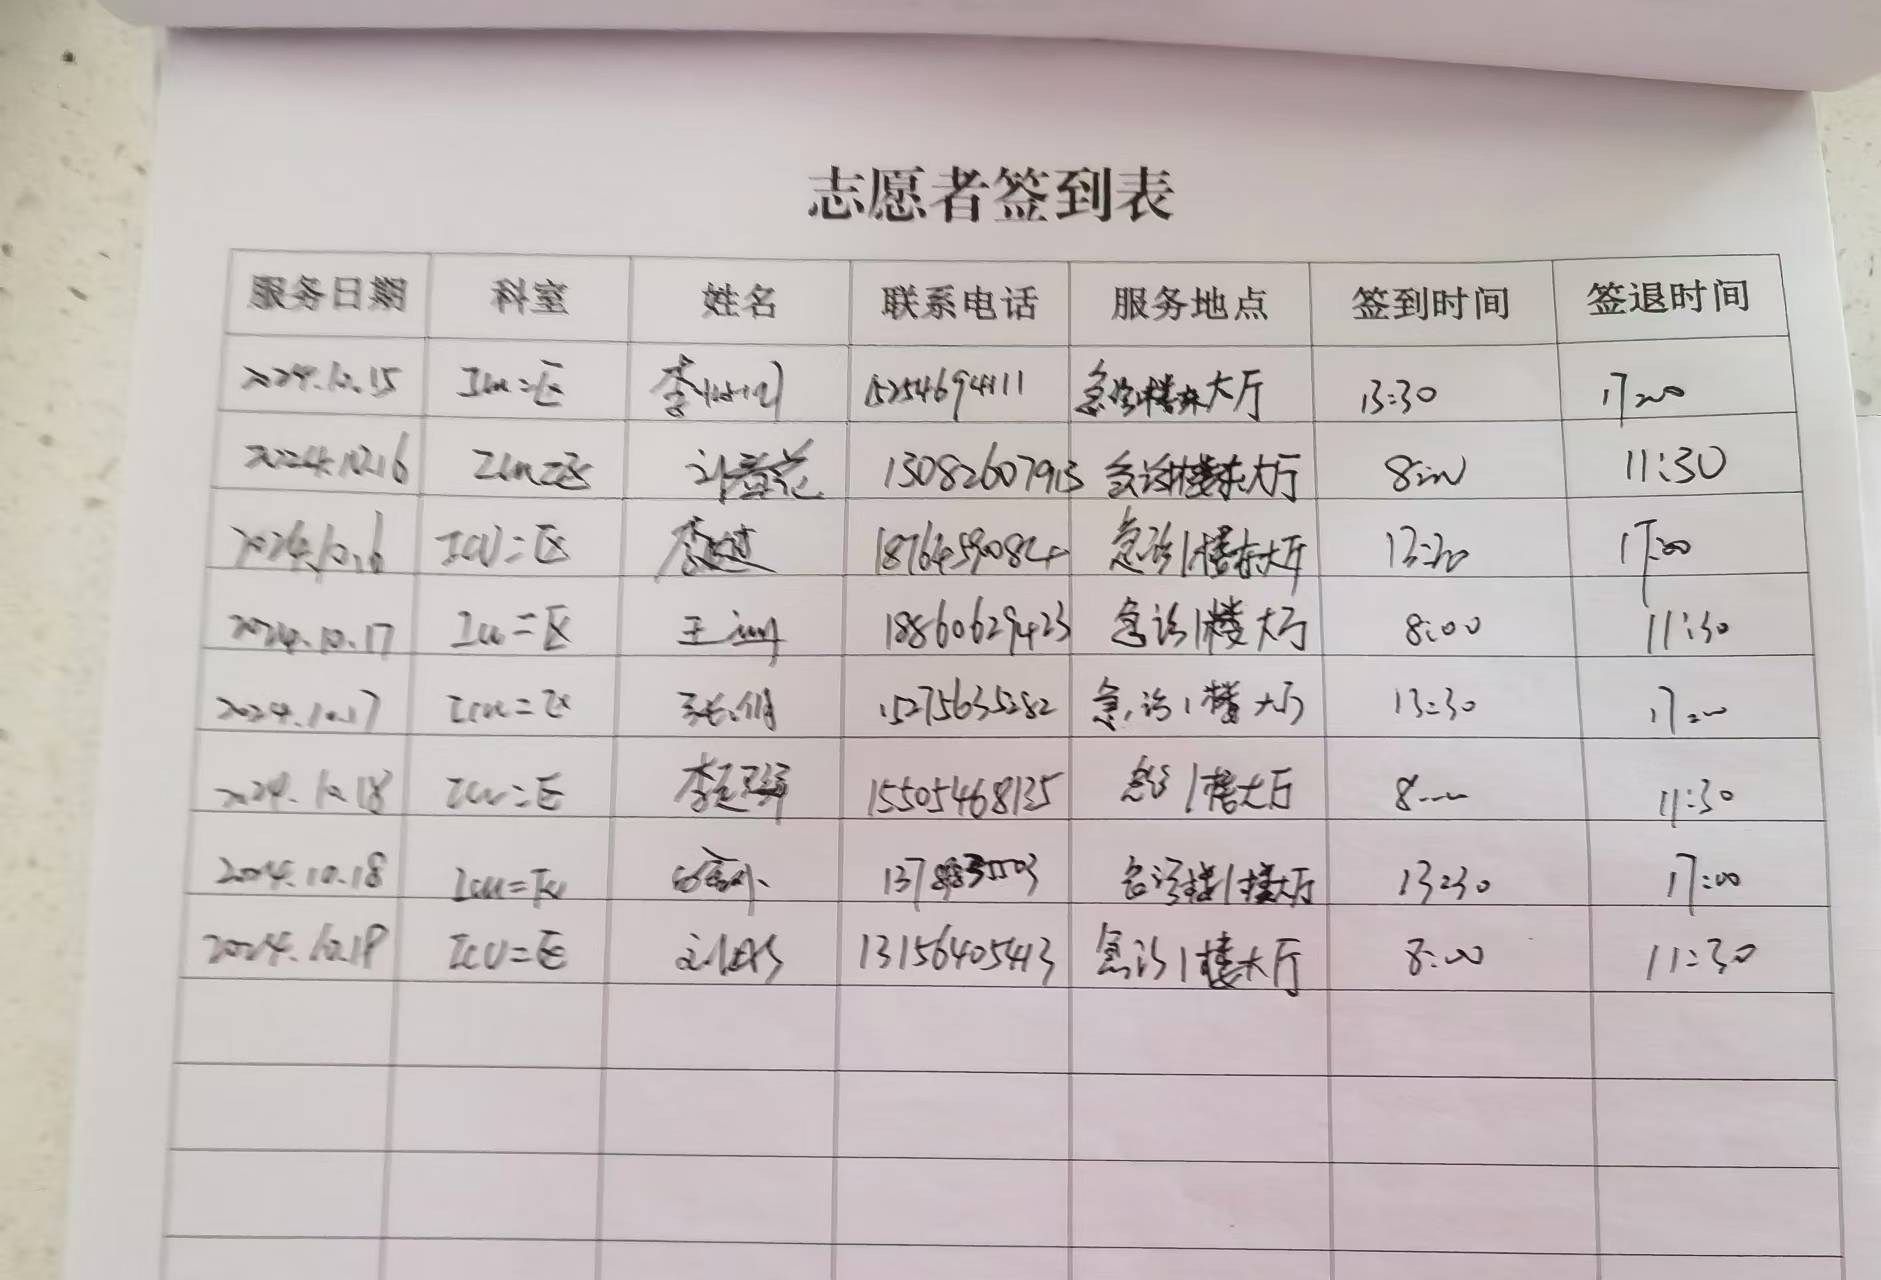 志愿者签到表
服务日期 科室 姓名 联系电话 服务地点 签到时间 签退时间
2024.10.15 ICU二区 李 15254694111 急诊楼东大厅 13:30 17:00
2024.10.16 ICU二区 13082607913 急诊楼东大厅 8:00 11:30
2024.10.16 ICU二区 18764590824 急诊1楼东大厅 13:30 17:00
2024.10.17 ICU二区 王 18860629423 急诊1楼大厅 8:00 11:30
2024.10.17 ICU二区 张 15275635282 急诊1楼大厅 13:30 17:00
2024.10.18 ICU二区 李 15505468135 急诊1楼大厅 8:00 11:30
2024.10.18 ICU二区 急诊楼1楼大厅 13:30 17:00
ICU二区 刘 13156405413 急诊1楼大厅 8:00 11:30